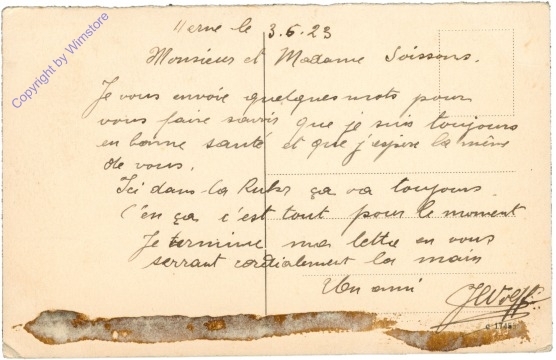 Herne le 3.6.23
Monsieur et Madame Soissons.
Je vous envoie quelques mots pour
vous faire savoir que je suis toujours
en bonne santé et que j'espère la même
de vous.
Ici dans la Ruhr ça va toujours
C'en ça c'est tout pour le moment
Je termine ma lettre en vous
serrant cordialement la main
Un ami
JWolff
Copyright by Wimstore